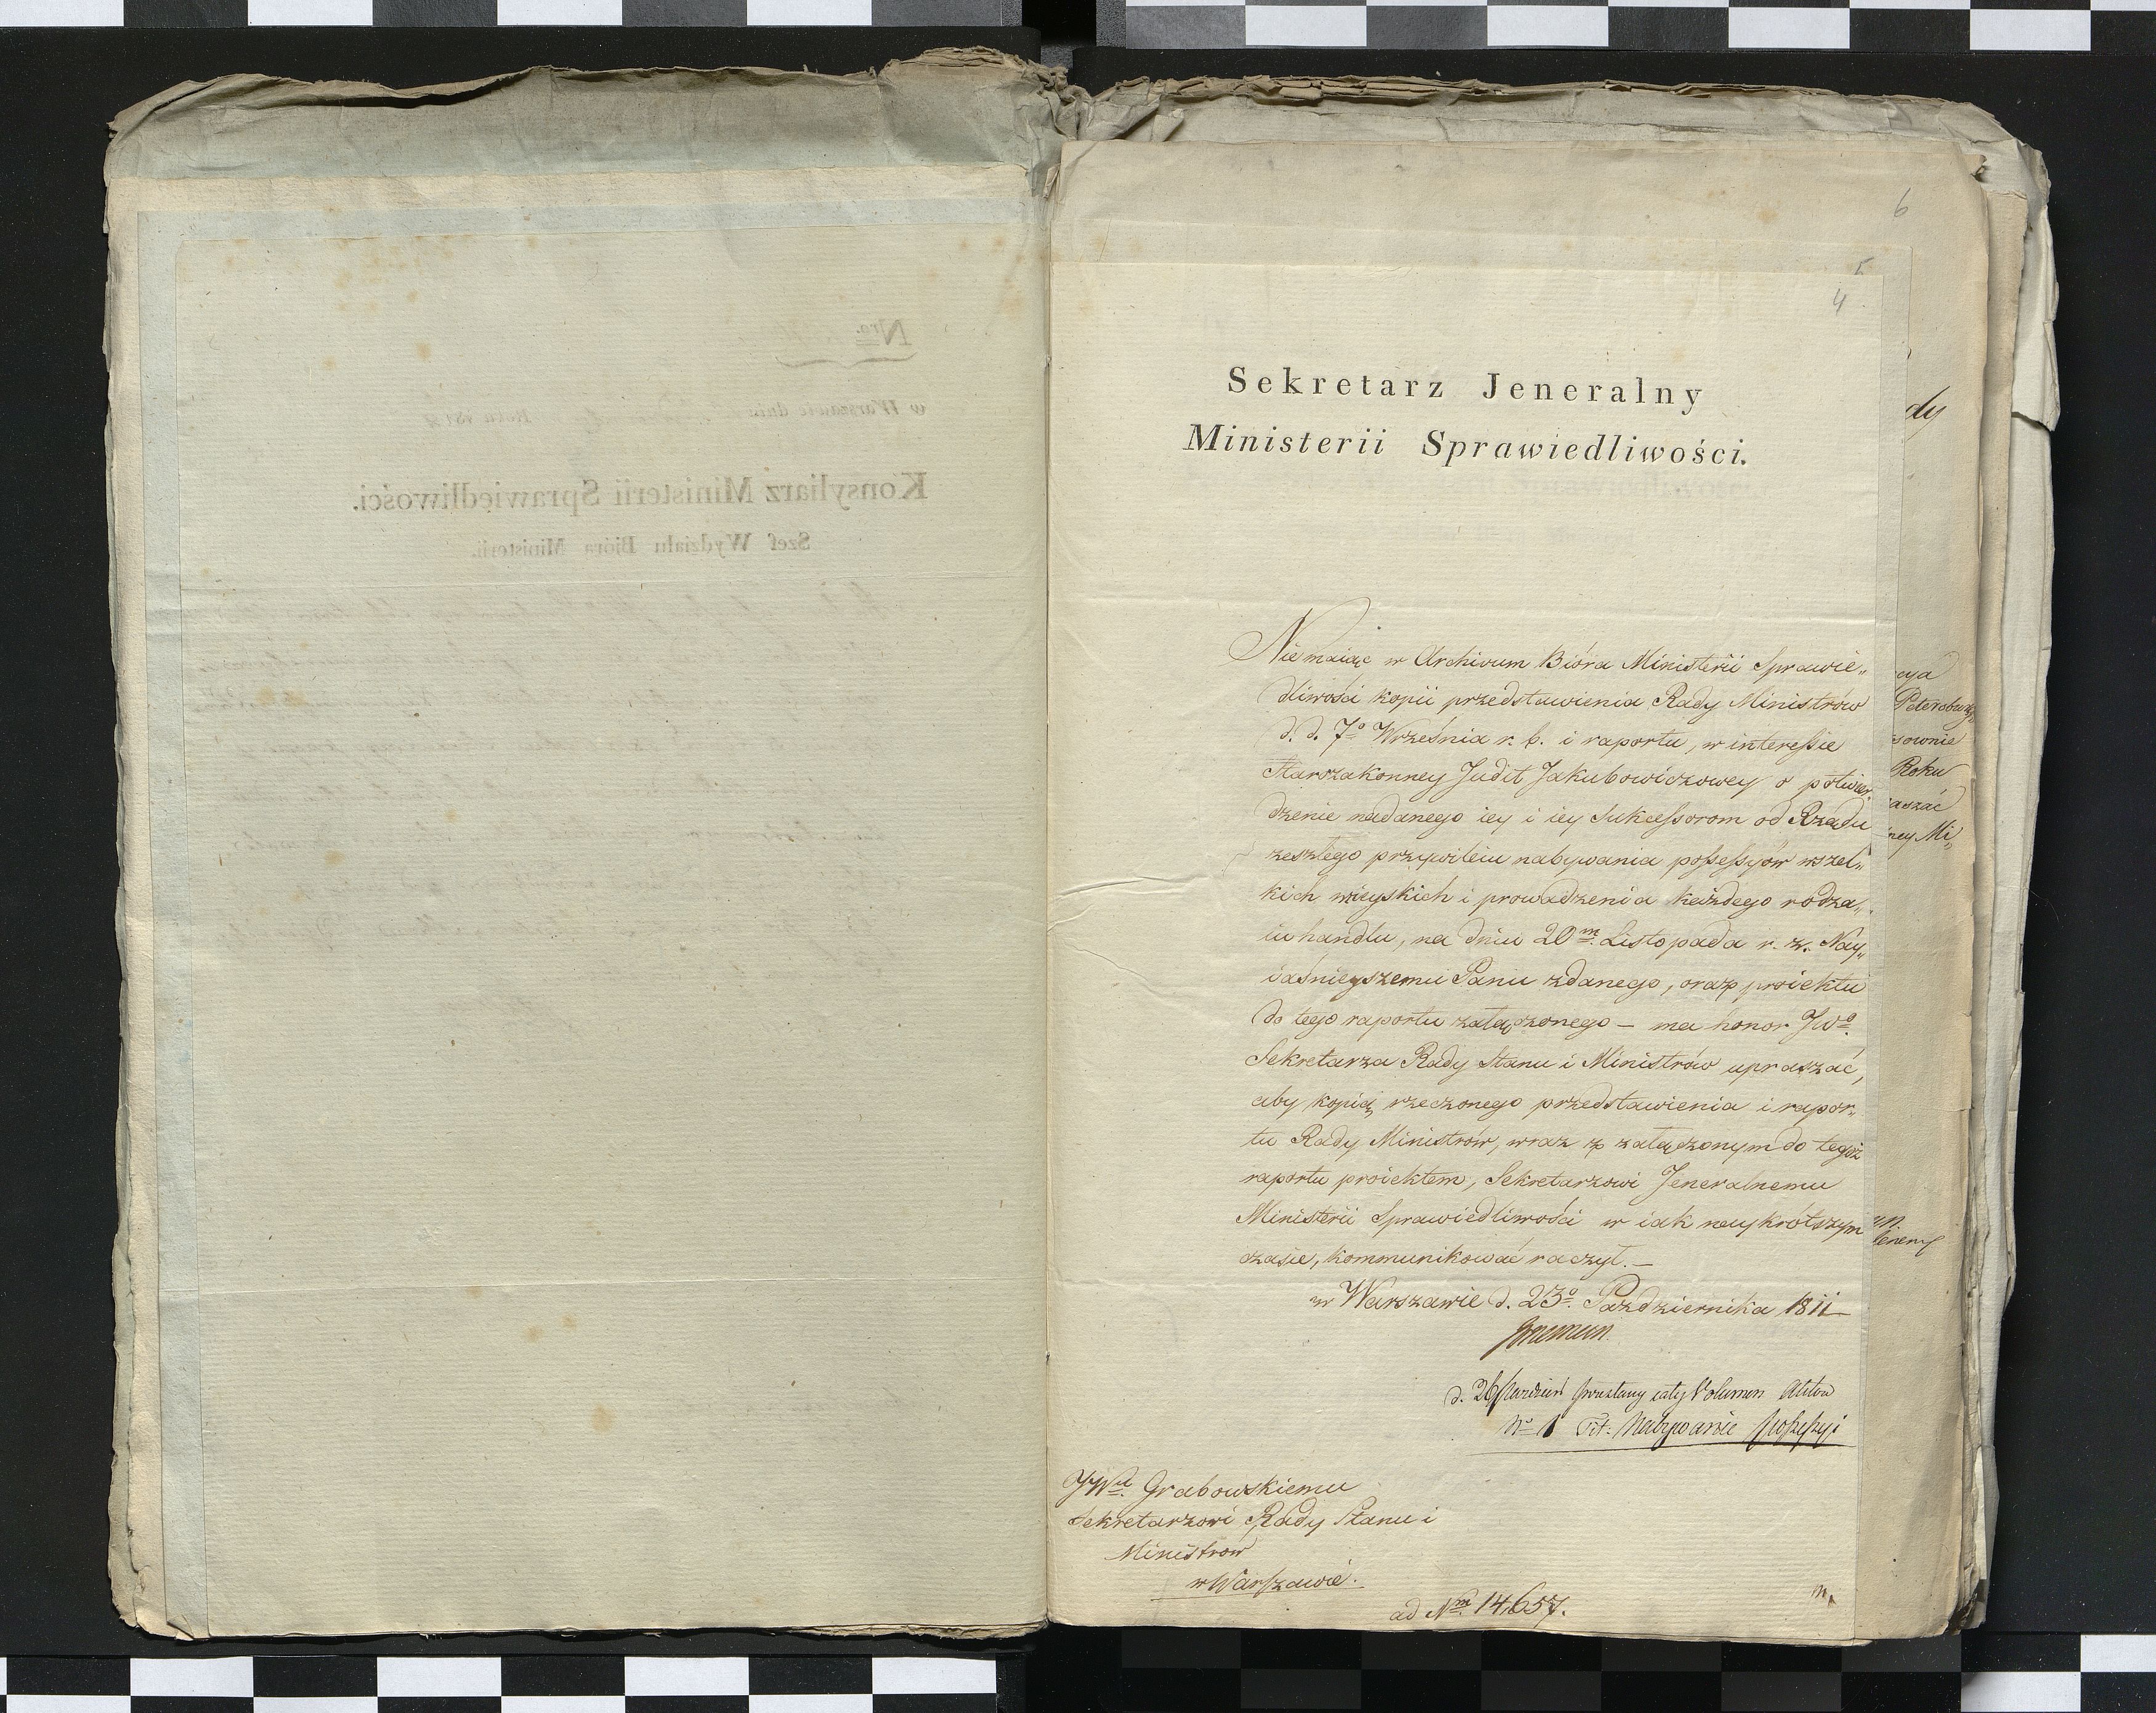 6
5
4
Sekretarz Jeneralny
Ministerii Sprawiedliwości.
Nie maiąc w Archivum Bióra Ministerii Sprawie„
dliwości kopii przedstawienia Rady Ministrów
d. d. 7º Września r. b. i raportu, w interessie
Starozakonney Judit Jakubowiczowey o potwier„
dzenie nadanego iey i iey Sukcessorom od Rządu
zeszłego przywileiu nabywania possessyów wszel„
kich wieyskich i prowadzenia każdego rodza„
iu handlu, na dniu 20m Listopada r. z. Nay„
iaśnieyszemu Panu zdanego, oraz proiektu
do tego raportu załączonego — ma honor JWo.
Sekretarza Rady Stanu i Ministrów upraszać,
aby kopią rzeczonego przedstawienia i rapor„
tu Rady Ministrów, wraz z załączonym do tegoż
raportu proiektem, Sekretarzowi Jeneralnemu
Ministerii Sprawiedliwości w iak naykrótszym
czasie, kommunikować raczył. —
w Warszawie d. 23º. Października 1811
d. 26 cały Volumen Aktów
Nº 1 tit: Nabywanie Possessyi
JWu. Grabowskiemu
Sekretarzowi Rady Stanu i
Ministrów
w Warszawie.
ad Nm. 14,657.
dy
Petersburg„
Roku
aszać
ney Mi„
Nro.
w Warszawie dnia Roku 181
Konsyliarz Ministerii Sprawiedliwości.
Szef Wydziału Bióra Ministerii.